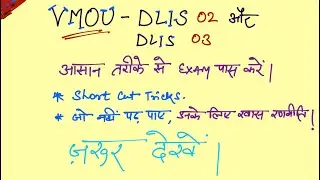 VMOU - DLIS 02 और
DLIS 03
आसान तरीके से Exam पास करें।
* Short Cut Tricks.
* जो नहीं पढ़ पाए, उनके लिए खास रणनीति।
ज़रूर देखें।